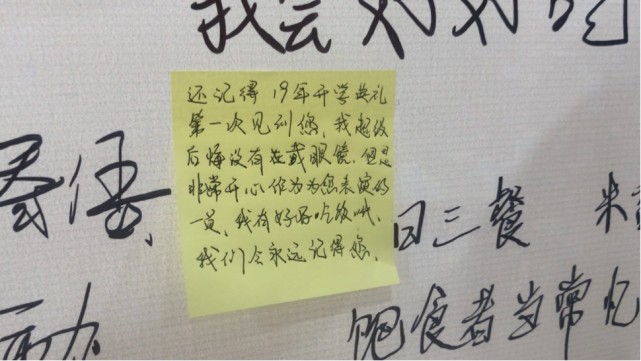 我会好好吃
还记得 19年开学典礼
第一次见到您,我超级
后悔没有在戴眼镜.但是
非常开心作为为您表演的
一员,我有好好吃饭哦、
我们会永远记得您、
日三餐 米
饱食者当常忆